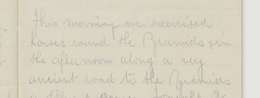 This morning we exercised
horses round the Pyramids in
the afternoon along a very
ancient road to the Pyramids